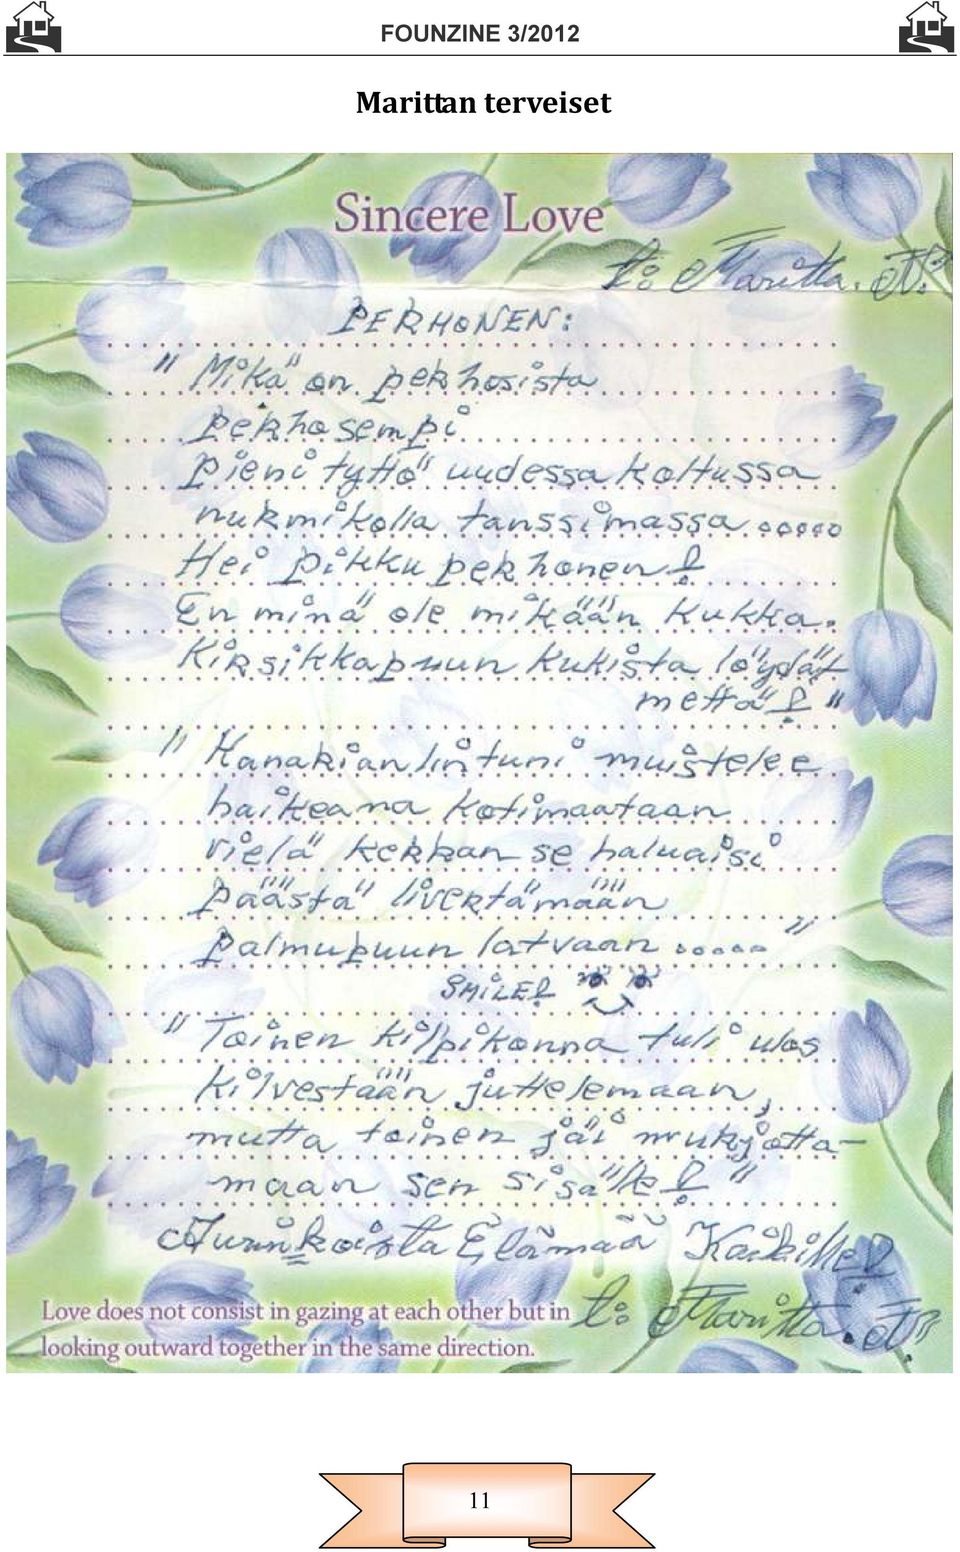 FOUNZINE 3/2012
Marittan terveiset
Sincere Love
t: Maritta. N.
PERHONEN:
"Mikä on perhosista
perhosempi
pieni tyttö uudessa koltussa
nurmikolla tanssimassa.....
Hei pikku perhonen!
En minä ole mikään kukka.
Kirsikkapuun kukista löydät
mettä!"
"Kanakianlintuni muistelee
haikeana kotimaataan
vielä kerran se haluaisi
päästä livertämään
palmupuun latvaan....."
SMILE!
"Toinen kilpikonna tuli ulos
kilvestään juttelemaan,
mutta toinen jäi murjotta-
maan sen sisälle!"
Aurinkoista Elämää Kaikille!
Love does not consist in gazing at each other but in
looking outward together in the same direction.
t: Maritta. N
11